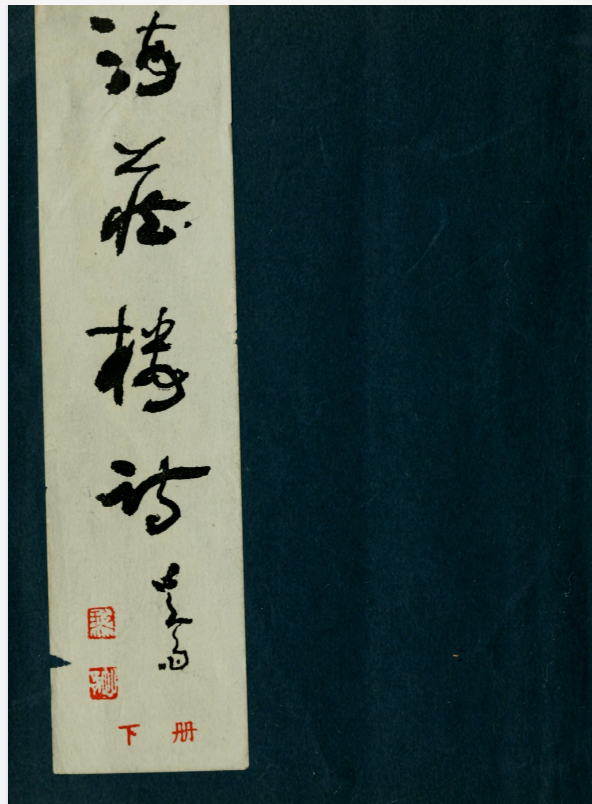 海藏樓詩
下册